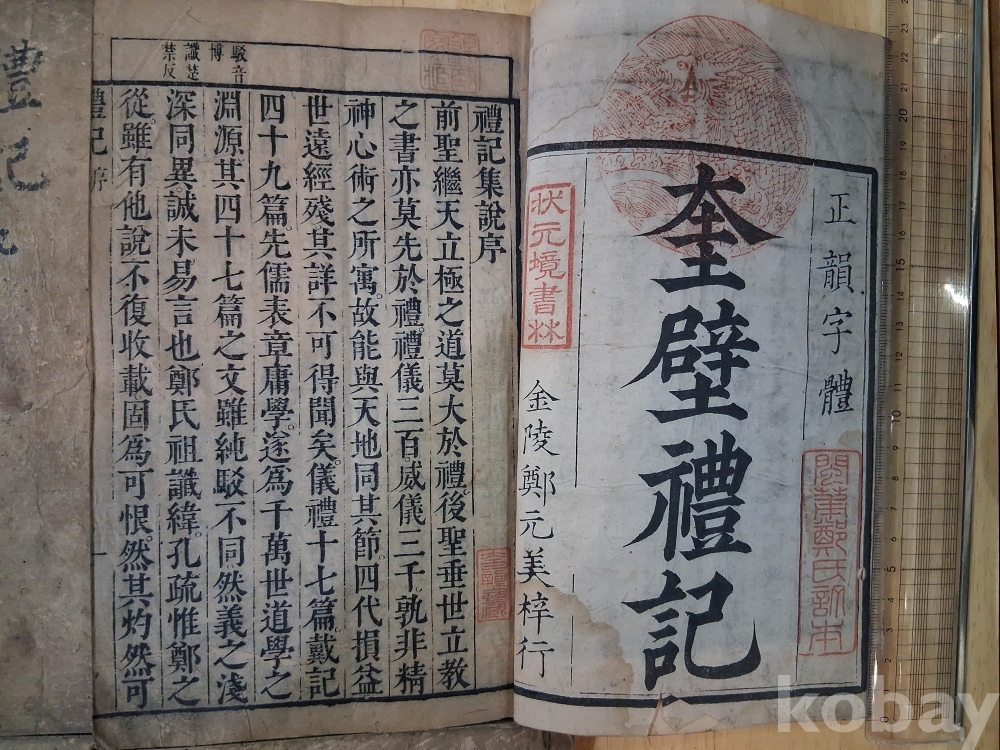 正韻字體
奎壁禮記
狀元境書林
金陵鄭元美梓行
禮記集說序
前聖繼天立極之道莫大於禮後聖垂世立教
之書亦莫先於禮禮儀三百威儀三千孰非精
神心術之所寓故能與天地同其節四代損益
世遠經殘其詳不可得聞矣儀禮十七篇戴記
四十九篇先儒表章庸學遂爲千萬世道學之
淵源其四十七篇之文雖純駁不同然義之淺
深同異誠未易言也鄭氏祖讖緯孔疏惟鄭之
從雖有他說不復收載固爲可恨然其灼然可
駁音
博
讖楚
禁反
禮記 序
一
禮記
20
15
kobay